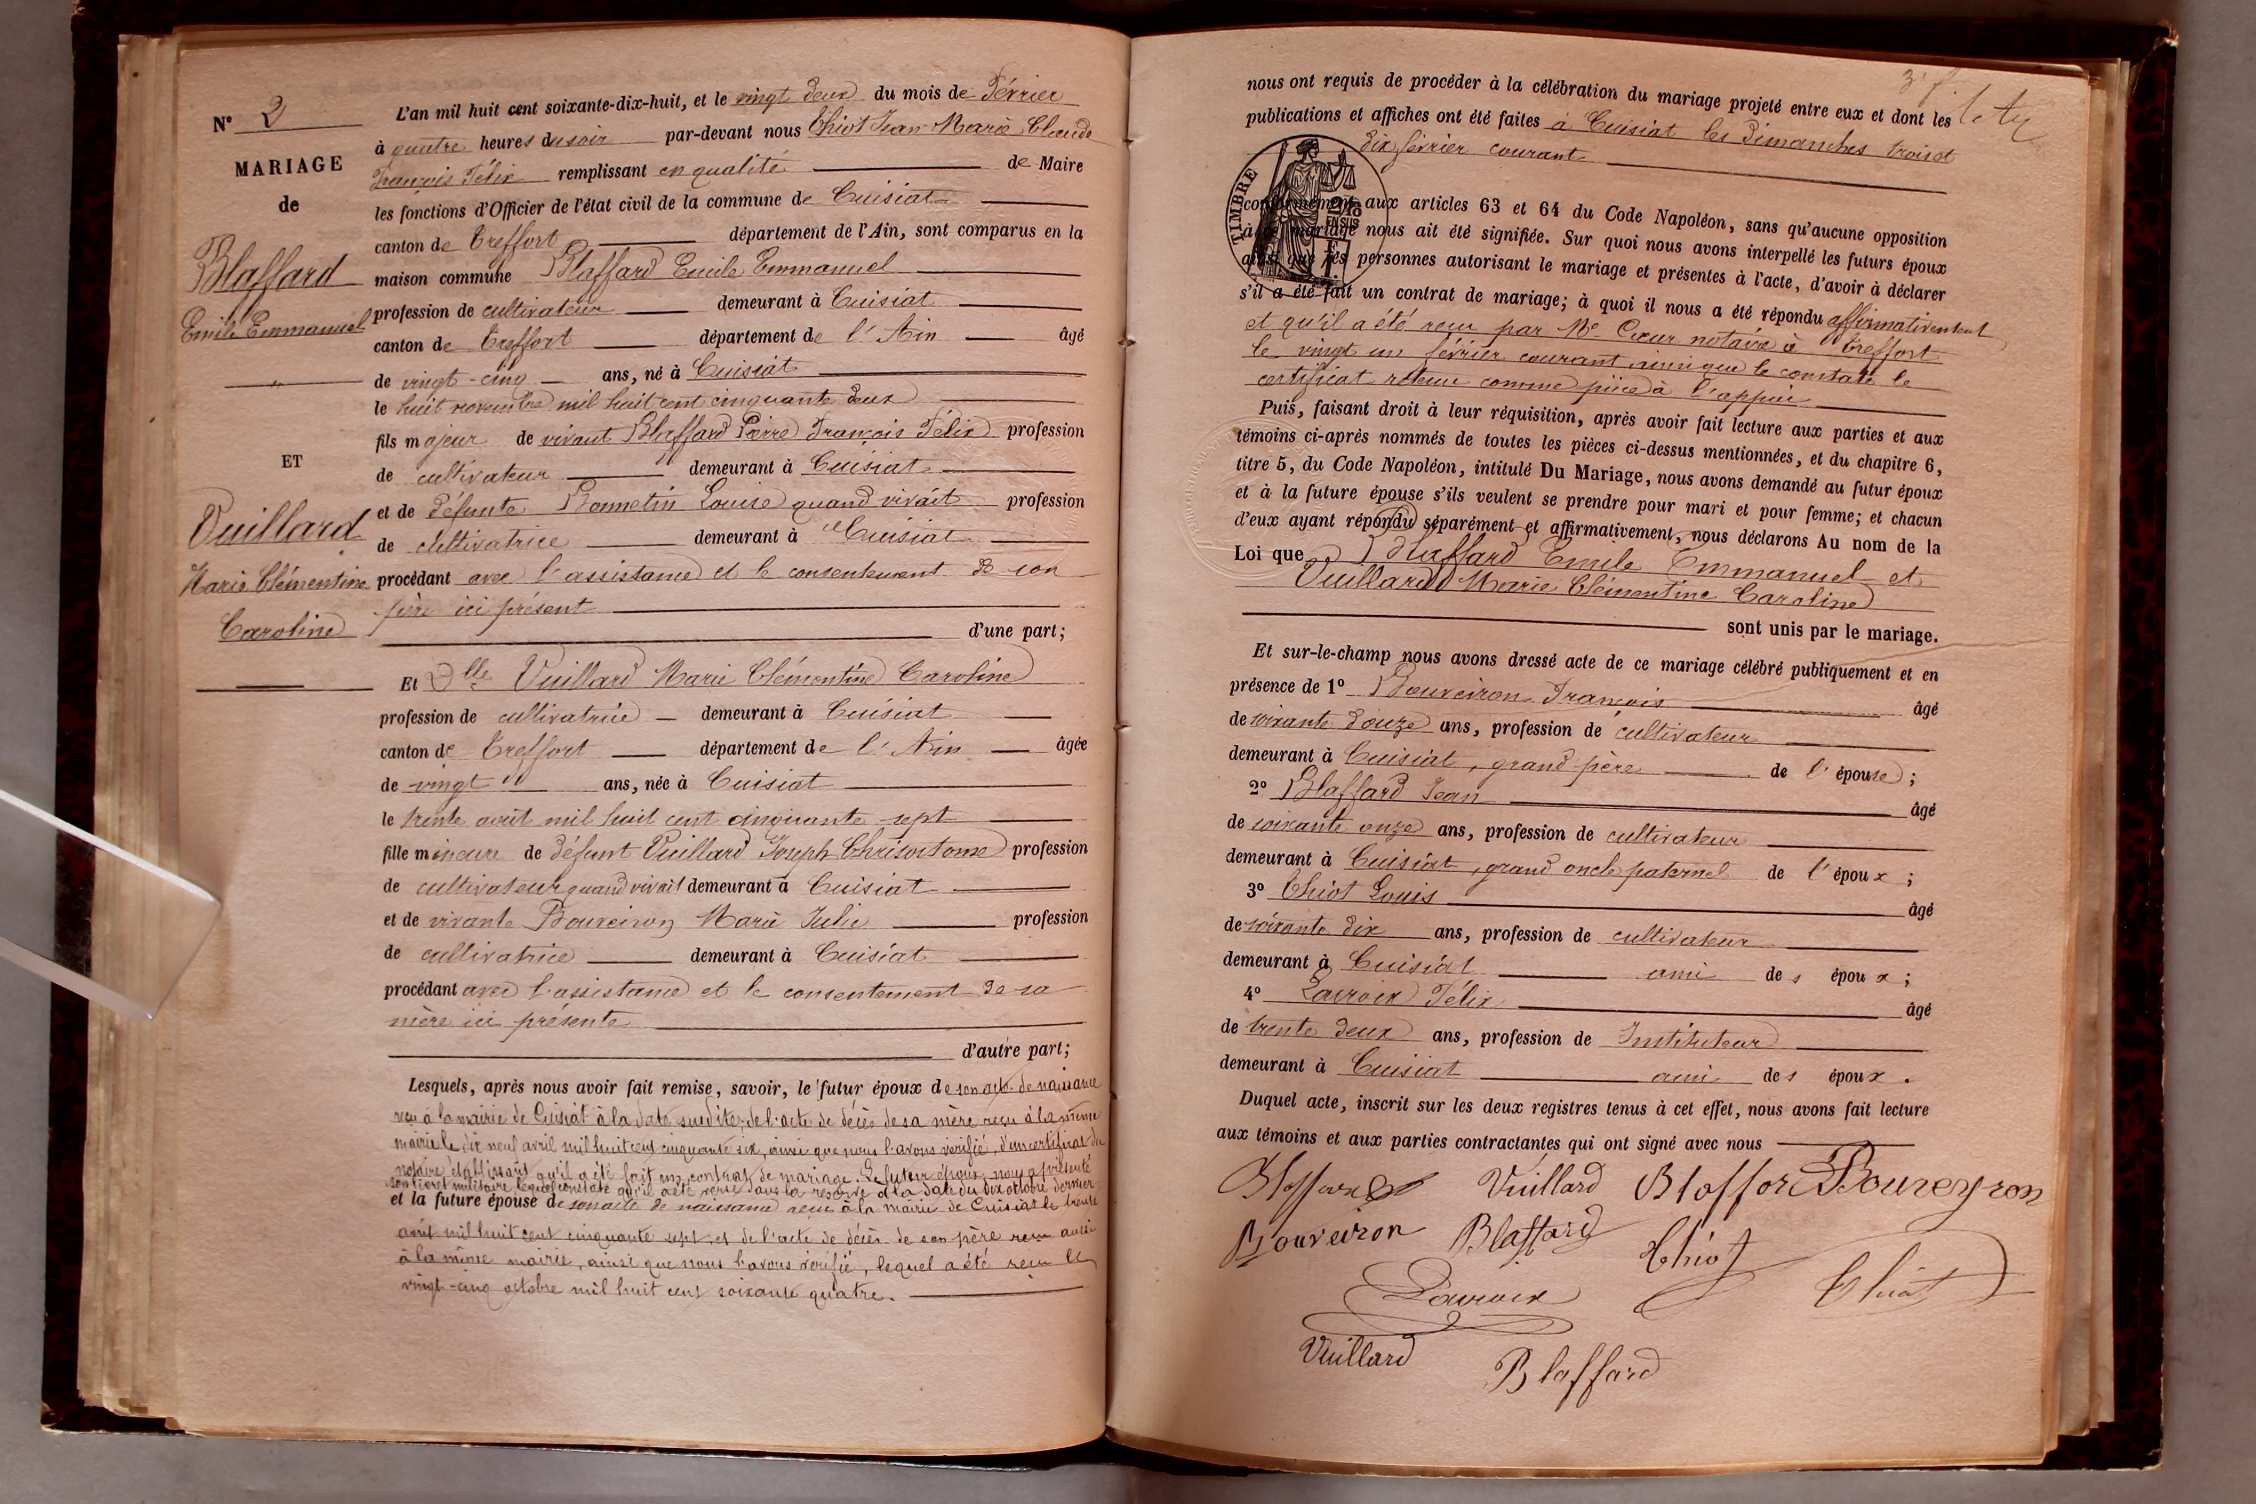 N° 2
MARIAGE
de
Blaffard
Emile Emmanuel
ET
Vuillard
Marie Clémentine
Caroline
L'an mil huit cent soixante-dix-huit, et le vingt deux du mois de Février
à quatre heures du soir par-devant nous Chiot Jean Marie Claude
François Félix remplissant en qualité de Maire
les fonctions d'Officier de l'état civil de la commune de Cuisiat
canton de Treffort département de l'Ain, sont comparus en la
maison commune Blaffard Emile Emmanuel
profession de cultivateur demeurant à Cuisiat
canton de Treffort département de l'Ain âgé
de vingt-cinq ans, né à Cuisiat
le huit novembre mil huit cent cinquante deux
fils majeur de vivant Blaffard Pierre François Félix profession
de cultivateur demeurant à Cuisiat
et de défunte Bonnetin Louise quand vivait profession
de cultivatrice demeurant à Cuisiat
procédant avec l'assistance et le consentement de son
père ici présent
d'une part;
Et Dlle Vuillard Marie Clémentine Caroline
profession de cultivatrice demeurant à Cuisiat
canton de Treffort département de l'Ain âgée
de vingt ans, née à Cuisiat
le trente août mil huit cent cinquante sept
fille mineure de défunt Vuillard Joseph Chrisostome profession
de cultivateur quand vivait demeurant à Cuisiat
et de vivante Bouveiron Marie Julie profession
de cultivatrice demeurant à Cuisiat
procédant avec l'assistance et le consentement de sa
mère ici présente
d'autre part;
Lesquels, après nous avoir fait remise, savoir, le futur époux de son acte de naissance
reçu à la mairie de Cuisiat à la date susdite; de l'acte de décès de sa mère reçu à la même
mairie le dix neuf avril mil huit cent cinquante six, ainsi que nous l'avons vérifié, d'un certificat du
notaire établissant qu'il a été fait un contrat de mariage. Le futur époux nous a présenté
son livret militaire lequel constate qu'il a été versé dans la réserve à la date du dix octobre dernier
et la future épouse de son acte de naissance reçu à la mairie de Cuisiat le trente
août mil huit cent cinquante sept et de l'acte de décès de son père reçu aussi
à la même mairie, ainsi que nous l'avons vérifié, lequel a été reçu le
vingt-cinq octobre mil huit cent soixante quatre.
nous ont requis de procéder à la célébration du mariage projeté entre eux et dont les
publications et affiches ont été faites à Cuisiat les Dimanches trois et
dix février courant
TIMBRE
conformément aux articles 63 et 64 du Code Napoléon, sans qu'aucune opposition
à ce mariage nous ait été signifiée. Sur quoi nous avons interpellé les futurs époux
ainsi que les personnes autorisant le mariage et présentes à l'acte, d'avoir à déclarer
s'il a été fait un contrat de mariage; à quoi il nous a été répondu affirmativement
et qu'il a été reçu par Me Cœur notaire à Treffort
le vingt un février courant ainsi que le constate le
certificat retenu comme pièce à l'appui
Puis, faisant droit à leur réquisition, après avoir fait lecture aux parties et aux
témoins ci-après nommés de toutes les pièces ci-dessus mentionnées, et du chapitre 6,
titre 5, du Code Napoléon, intitulé Du Mariage, nous avons demandé au futur époux
et à la future épouse s'ils veulent se prendre pour mari et pour femme; et chacun
d'eux ayant répondu séparément et affirmativement, nous déclarons Au nom de la
Loi que Blaffard Emile Emmanuel et
Vuillard Marie Clémentine Caroline
sont unis par le mariage.
Et sur-le-champ nous avons dressé acte de ce mariage célébré publiquement et en
présence de 1° Bouveiron François âgé
de soixante douze ans, profession de cultivateur
demeurant à Cuisiat, grand-père de l'épouse;
2° Blaffard Jean âgé
de soixante onze ans, profession de cultivateur
demeurant à Cuisiat, grand oncle paternel de l'époux;
3° Chiot Louis âgé
de soixante dix ans, profession de cultivateur
demeurant à Cuisiat ami des époux;
4° Lacroix Félix âgé
de trente deux ans, profession de Instituteur
demeurant à Cuisiat ami des époux.
Duquel acte, inscrit sur les deux registres tenus à cet effet, nous avons fait lecture
aux témoins et aux parties contractantes qui ont signé avec nous
Blaffard Vuillard Blaffard Bouveyron
Bouveiron Blaffard Chiot
Lacroix Chiot
Vuillard Blaffard